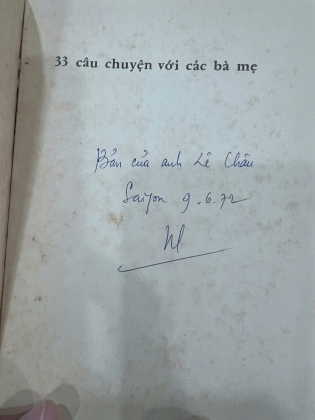 33 câu chuyện với các bà mẹ
Bản của anh Lê Châu
Saigon 9.6.72